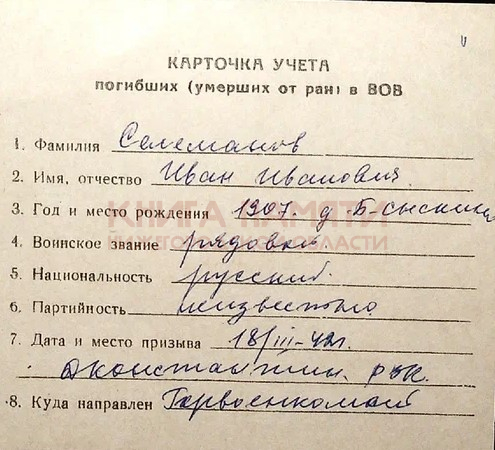 КАРТОЧКА УЧЕТА
погибших (умерших от ран) в ВОВ
1. Фамилия Селеманов
2. Имя, отчество Иван Иванович
3. Год и место рождения 1907. д Б-Сыскина
КНИГА ПАМЯТИ
4. Воинское звание рядовой
5. Национальность русский
6. Партийность неизвестно
7. Дата и место призыва 18/III-42г.
Константин. рвк.
8. Куда направлен Горвоенкомат